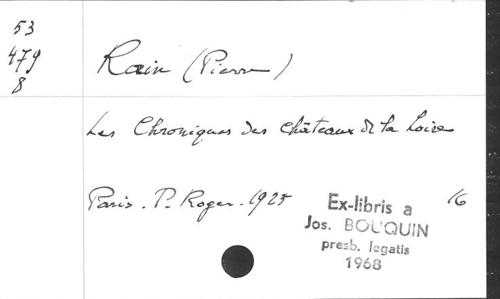 53
479
8
Rain (Pierre)
Les Chroniques des châteaux de la Loire
Paris. P. Roger. 1925
16
Ex-libris a
Jos. BOUQUIN
presb. legatis
1968